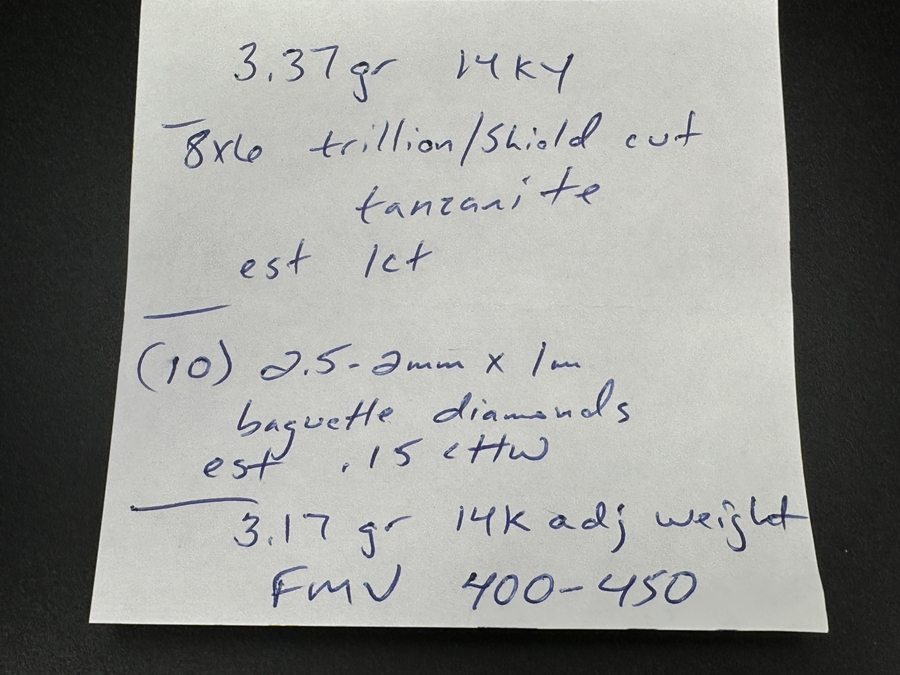 3.37 gr 14KY
8x6 trillion/Shield cut
tanzanite
est 1ct
(10) 2.5-2mm x 1m
baguette diamonds
est .15 cttw
3.17 gr 14K adj weight
FMV 400-450